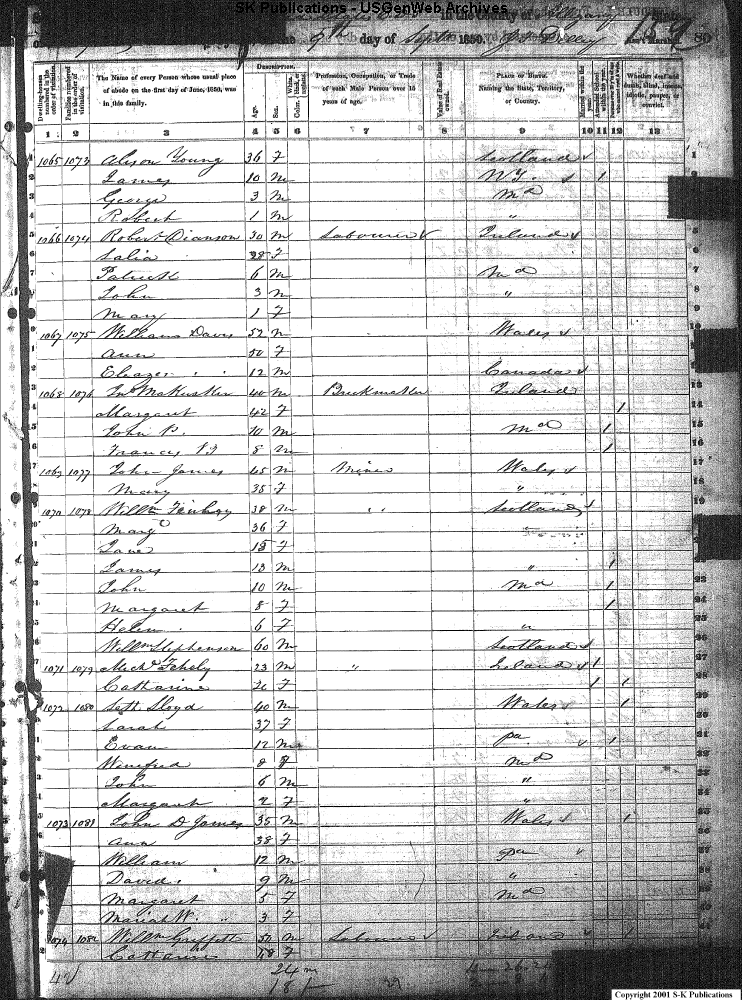 SK Publications - USGenWeb Archives
in the County of Allegany
9th day of Sept 1850.
80
Dwelling-houses numbered in the order of visitation.
Families numbered in the order of visitation.
The Name of every Person whose usual place of abode on the first day of June, 1850, was in this family.
Description.
Age.
Sex.
Color.
Profession, Occupation, or Trade of each Male Person over 15 years of age.
Value of Real Estate owned.
Place of Birth. Naming the State, Territory, or Country.
Married within the year.
Whether deaf and dumb, blind, insane, idiotic, pauper, or convict.
1 2 3 4 5 6 7 8 9 10 11 12 13
1065 1073 Alison Young 36 F Scotland
James 10 M N.Y. 1
George 3 M Md
Robert 1 M "
1066 1074 Robert Dianson 30 M Labourer Ireland
Salia 28 F
Patrick 6 M Md
John 3 M "
Mary 1 F
1067 1075 William Davis 52 M Wales
Ann 50 F
Eleazer 12 M Canada
1068 1076 Jno McKusker 40 M Brickmaker Ireland
Margaret 42 F 1
John P. 10 M Md 1
Francis 8 M 1
1069 1077 John James 45 M Miner Wales
Mary 35 F "
1070 1078 Willm Finlay 38 M " Scotland
Margt 36 F
Jane 15 F
James 13 M " 1
John 10 M Md 1
Margaret 8 F 1
Helen 6 F "
Willm Stephenson 60 M Scotland
1071 1079 Michl Fehely 23 M " Ireland 1
Catharine 20 F 1 1
1072 1080 Lloyd 40 M Wales 1
Sarah 37 F
Evan 12 M Pa 1
Winefred 8 F Md
John 6 M "
Margaret 2 F "
1073 1081 John D James 35 M Wales 1
Ann 38 F
William 12 M Pa "
David 9 M "
Margaret 5 F Md
Mariah W. 3 F
1074 1082 Willm Griffith 50 M Labourer Ireland 1
Catharine 48 F
42
24 m
18 f
Copyright 2001 S-K Publications